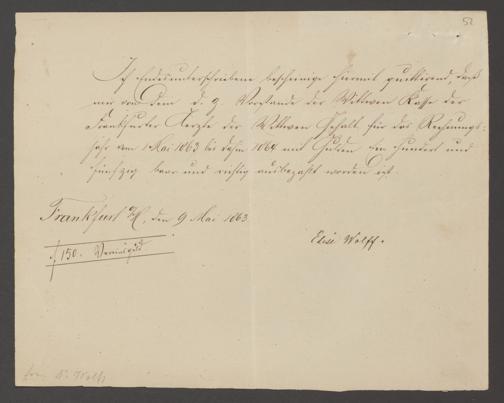 52
Ich Endesunterschriebene bescheinige hiermit quittirend, daß
mir von dem d. z. Vorstande der Wittwen Kasse der
Frankfurter Aerzte der Wittwen Gehalt für das Rechnungs-
jahr vom 1 Mai 1863 bis dahin 1864 mit Gulden Ein hundert und
fünfzig baar und richtig ausbezahlt worden ist.
Frankfurt a/M, den 9 Mai 1863
f. 150. Vereinsgeld
Elise Wolff.
Wolff